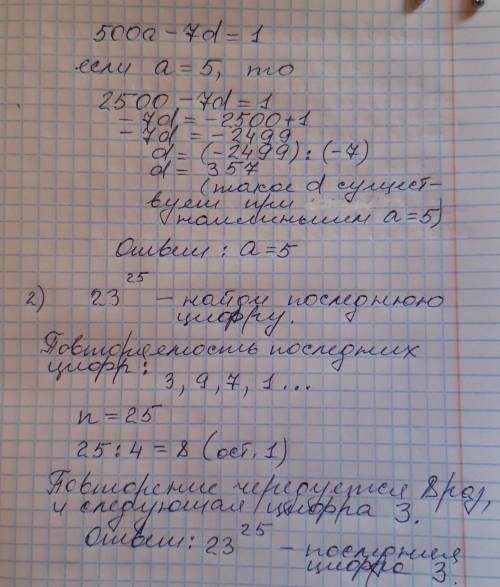 500a - 7d = 1
если a = 5, то
2500 - 7d = 1
- 7d = - 2500 + 1
- 7d = - 2499
d = (- 2499) : (- 7)
d = 357
(такое d сущест-
вует при
наименьшем a = 5)
Ответ : a = 5
2) 23²⁵ - найдем последнюю
цифру.
Повторяемость последних
цифр :
3, 9, 7, 1 ...
n = 25
25 : 4 = 8 (ост. 1)
Повторение чередуется 8 раз,
и следующая цифра 3.
Ответ : 23²⁵ - последняя
цифра 3.